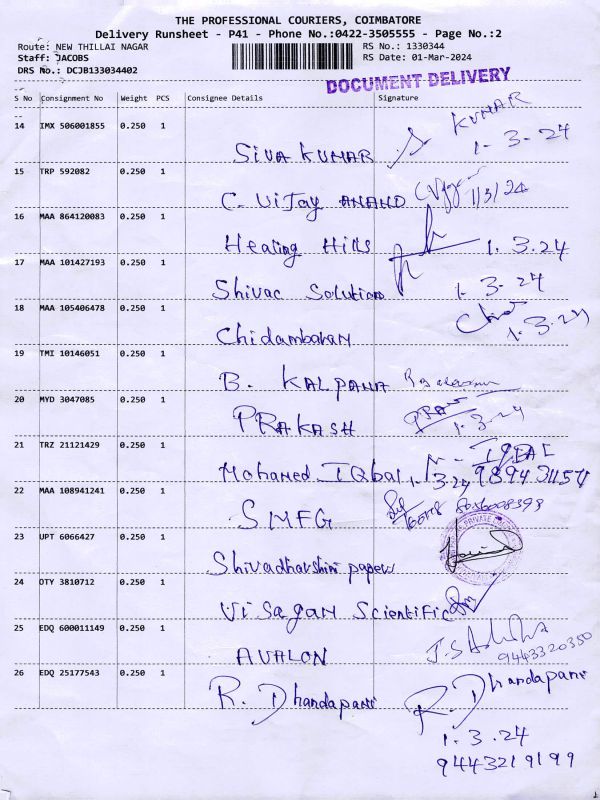 THE PROFESSIONAL COURIERS, COIMBATORE
Delivery Runsheet - P41 - Phone No.:0422-3505555 - Page No.:2
Route: NEW THILLAI NAGAR RS No.: 1330344
Staff: JACOBS RS Date: 01-Mar-2024
DRS No.: DCJB133034402
DOCUMENT DELIVERY
S No Consignment No Weight PCS Consignee Details Signature
14 IMX 506001855 0.250 1
SIVA KUMAR KUMAR
1-3-24
15 TRP 592082 0.250 1
C. Vijay ANAND 1/3/24
16 MAA 864120083 0.250 1
Healing Hills 1.3.24
17 MAA 101427193 0.250 1
Shivac Solution 1-3-24
18 MAA 105406478 0.250 1
Chidambaram 1.3.24
19 TMI 10146051 0.250 1
B. KALPANA
20 MYD 3047085 0.250 1
PRAKASH 1-3-24
21 TRZ 21121429 0.250 1
Mohamed IQbal 1-3-24
22 MAA 108941241 0.250 1
SMFG
23 UPT 6066427 0.250 1
Shivadharshini papers
24 DTY 3810712 0.250 1
Visagan Scientific
25 EDQ 600011149 0.250 1
AVALON 9443320350
26 EDQ 25177543 0.250 1
R. Dhandapani R. Dhandapani
1.3.24
9443219199